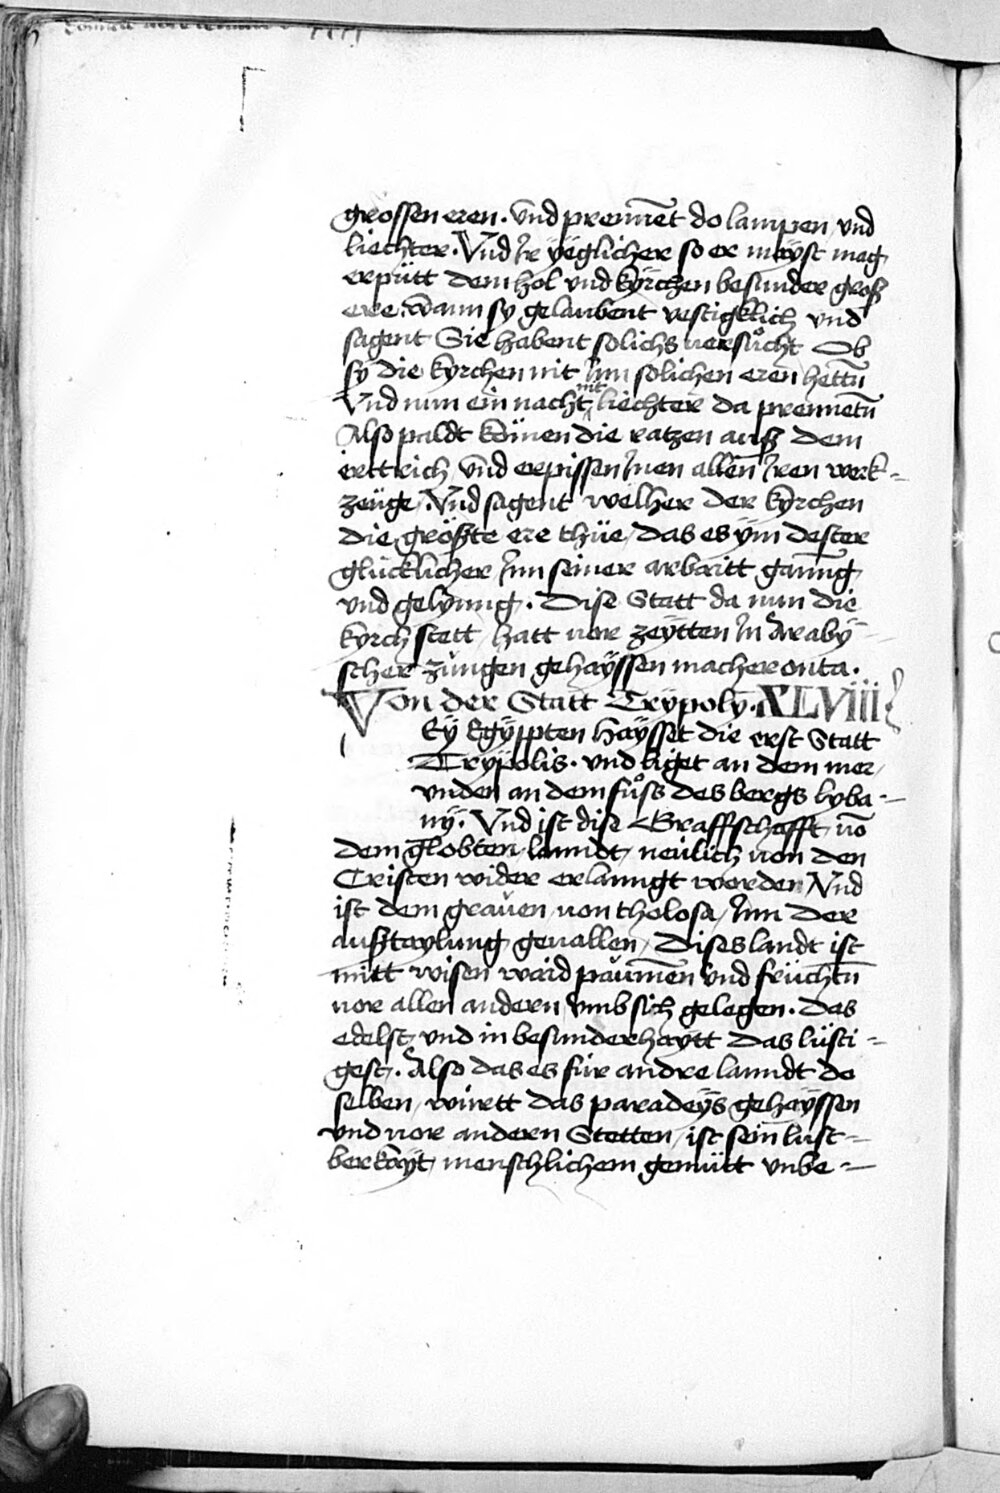 grossen eren. Vnd prennēt do lampen vnd
liechter. Vnd Ir yëglicher so er mayst mag
erpütt dem hol vnd kyrchen besunder groß
ere. wann sy gelaubent vestigklich vnd
sagent Sie habent solichs versůcht Ob
sy die kyrchen nit Inn solichen eren hettn̄
Vnd nun ein nacht nit liechter da prennetn̄
Also paldt kömen die ratzen auß dem
ërttrich vnd erpissen Inen allen̄ Iren werk=
zeüge. Vnd sagent wëlher der kyrchen
die größte ere thüe das es ym dester
glücklicher Inn seiner arbaitt ganng
vnd gelynng. Dise Statt da nun die
kyrch stett hatt vor zeytten In Araby=
scher zungen gehayssen macheronta.
Von der Statt Trypoly. XLVIII
Ey Egÿppten haysset die erst Statt
Trypolis. vnd liget an dem mer
vnden an dem fůss des bergs lyba=
ny. Vnd ist dise Graffschafft vō
dem globten lanndt neülich von den
Cristen wider erlanngt worden Vnd
ist dem grauen von tholosa Inn der
außtaylung geuallen Dises landt ist
mitt wisen waid paümen vnd früchtn̄
vor allen andern vmb sich gelegen. das
edelst vnd in besunderhaytt das lüsti=
gest. Also das es für andre lanndt do
selben wirtt das paradeys gehayssen
vnd vor andern Stetten ist sein lust=
berkayt menschlichem gemütt vnbe=